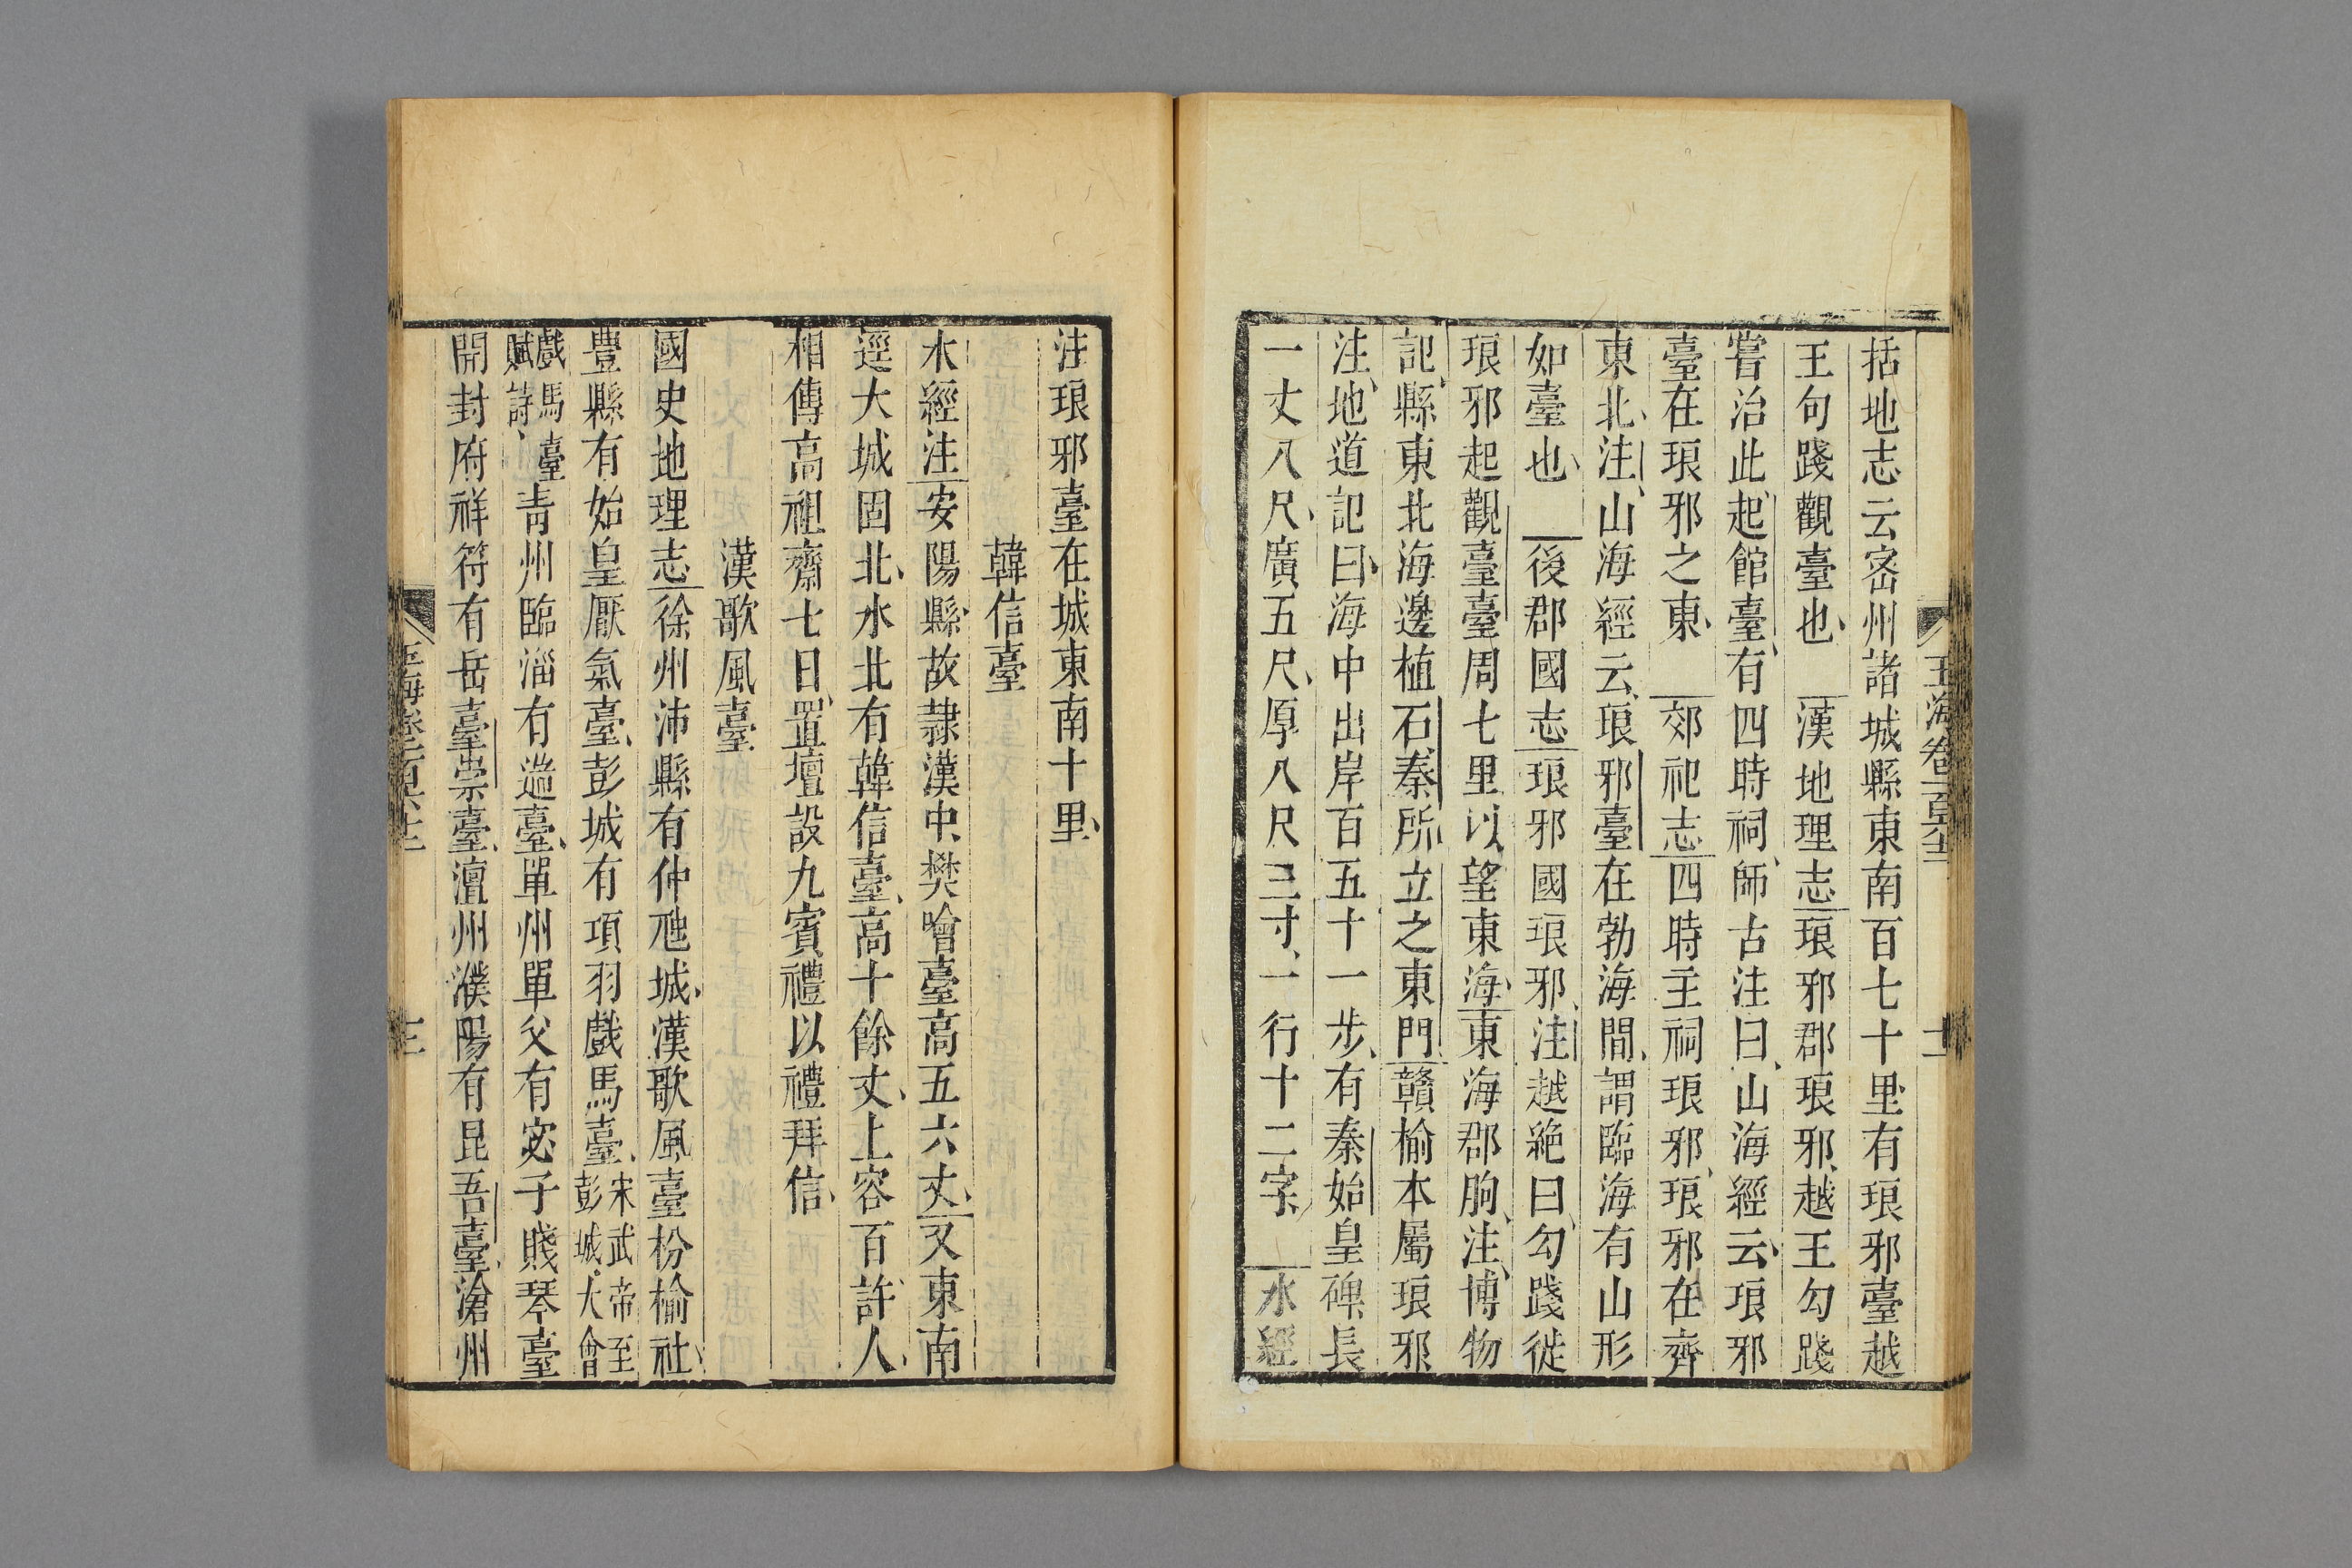 括地志云密州諸城縣東南百七十里有琅邪臺越
王句踐觀臺也 漢地理志琅邪郡琅邪越王勾踐
嘗治此起館臺有四時祠師古注曰山海經云琅邪
臺在琅邪之東 郊祀志四時主祠琅邪琅邪在齊
東北注山海經云琅邪臺在勃海間謂臨海有山形
如臺也 後郡國志琅邪國琅邪注越絶曰勾踐徙
琅邪起觀臺臺周七里以望東海東海郡朐注博物
記縣東北海邊植石秦所立之東門贛榆本屬琅邪
注地道記曰海中出岸百五十一步有秦始皇碑長
一丈八尺廣五尺厚八尺三寸一行十二字 水經
注琅邪臺在城東南十里
韓信臺
水經注安陽縣故隸漢中樊噲臺高五六丈又東南
逕大城固北水北有韓信臺高十餘丈上容百許人
相傳高祖齋七日置壇設九賓禮以禮拜信
漢歌風臺
國史地理志徐州沛縣有仲虺城漢歌風臺枌榆社
豐縣有始皇厭氣臺彭城有項羽戲馬臺宋武帝至彭城大會
戲馬臺賦詩青州臨淄有遄臺單州單父有宓子賤琴臺
開封府祥符有岳臺崇臺澶州濮陽有昆吾臺滄州